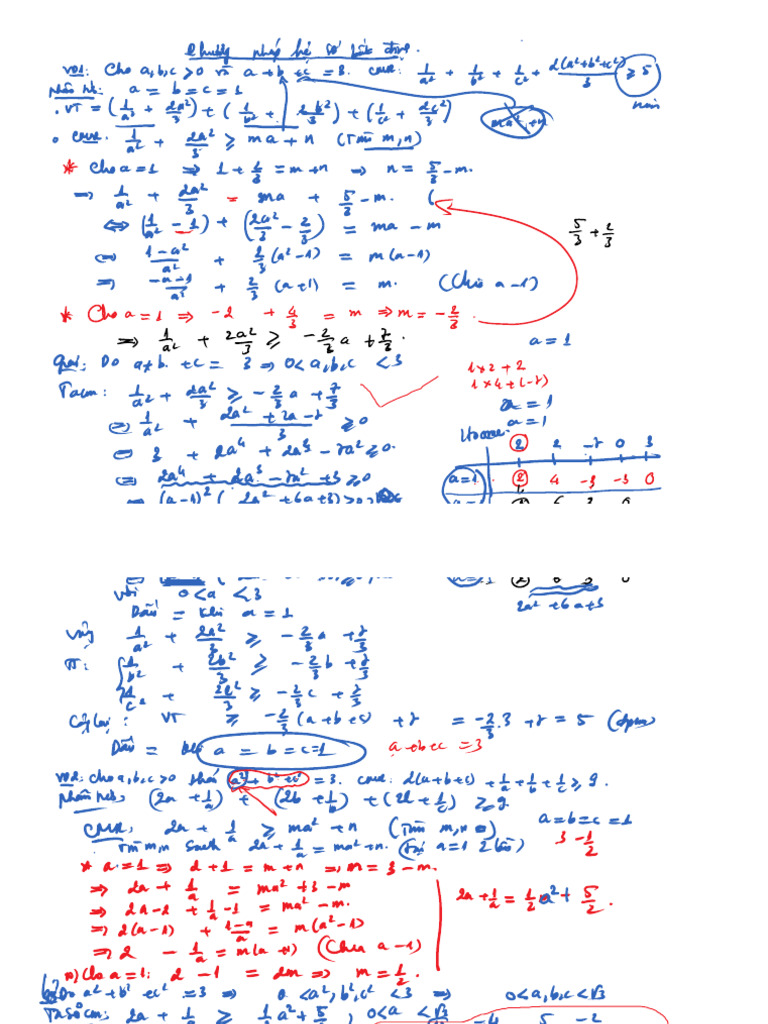 Phương pháp hệ số bất định.
VD1: Cho a,b,c >0 và a+b+c = 3. CMR: 1/a² + 1/b² + 1/c² + 2(a²+b²+c²)/3 ≥ 5
Nhận xét: a = b = c = 1
VT = (1/a² + 2a²/3) + (1/b² + 2b²/3) + (1/c² + 2c²/3)
CMR: 1/a² + 2a²/3 ≥ ma + n (Tìm m,n)
* Cho a=1 ⇒ 1 + 2/3 = m+n ⇒ n = 5/3 - m.
⇒ 1/a² + 2a²/3 = ma + 5/3 - m.
⇔ (1/a² - 1) + (2a²/3 - 2/3) = ma - m
5/3 + 2/3
⇔ 1-a²/a² + 2/3(a²-1) = m(a-1)
⇒ -a-1/a² + 2/3(a+1) = m. (Chia a-1)
* Cho a=1 ⇒ -2 + 4/3 = m ⇒ m = -2/3
⇒ 1/a² + 2a²/3 ≥ -2/3a + 7/3.
a=1
Giải: Do a+b+c = 3 ⇒ 0<a,b,c <3
1x2+2
1x4+(-7)
Ta cm: 1/a² + 2a²/3 ≥ -2/3a + 7/3
a=1
a=1
⇔ 1/a² + 2a²+2a-7/3 ≥ 0
2 2 -7 0 3
⇔ 3 + 2a⁴ + 2a³ - 7a² ≥ 0.
⇔ 2a⁴ + 2a³ - 7a² + 3 ≥ 0
a=1 2 4 -3 -3 0
⇔ (a-1)²(2a²+6a+3) ≥ 0
với 0<a<3
2a²+6a+3
Dấu = khi a=1
Vậy 1/a² + 2a²/3 ≥ -2/3a + 7/3
TT: 1/b² + 2b²/3 ≥ -2/3b + 7/3
1/c² + 2c²/3 ≥ -2/3c + 7/3
Cộng lại: VT ≥ -2/3(a+b+c) + 7 = -2/3.3 + 7 = 5 (đpcm)
Dấu = khi a = b = c = 1 a+b+c = 3
VD2: Cho a,b,c>0 thoả a²+b²+c² = 3. CMR: 2(a+b+c) + 1/a + 1/b + 1/c ≥ 9.
Nhận xét: (2a+1/a) + (2b+1/b) + (2c+1/c) ≥ 9
CMR: 2a + 1/a ≥ ma² + n (Tìm m,n) a=b=c=1
Tìm m,n 2a + 1/a = ma² + n. 3 - 1/2
* a=1 ⇒ 2+1 = m+n ⇒ n = 3 - m.
⇒ 2a + 1/a = ma² + 3 - m
2a + 1/a = 1/2a² + 5/2.
⇒ 2a-2 + 1/a - 1 = ma² - m.
⇒ 2(a-1) + 1-a/a = m(a²-1)
⇒ 2 - 1/a = m(a+1) (Chia a-1)
Cho a=1: 2 - 1 = 2m ⇒ m = 1/2.
Do a²+b²+c² = 3 ⇒ 0<a²,b²,c² <3 ⇒ 0<a,b,c<√3
2a + 1/a ≥ 1/2a² + 5/2, 0<a<√3